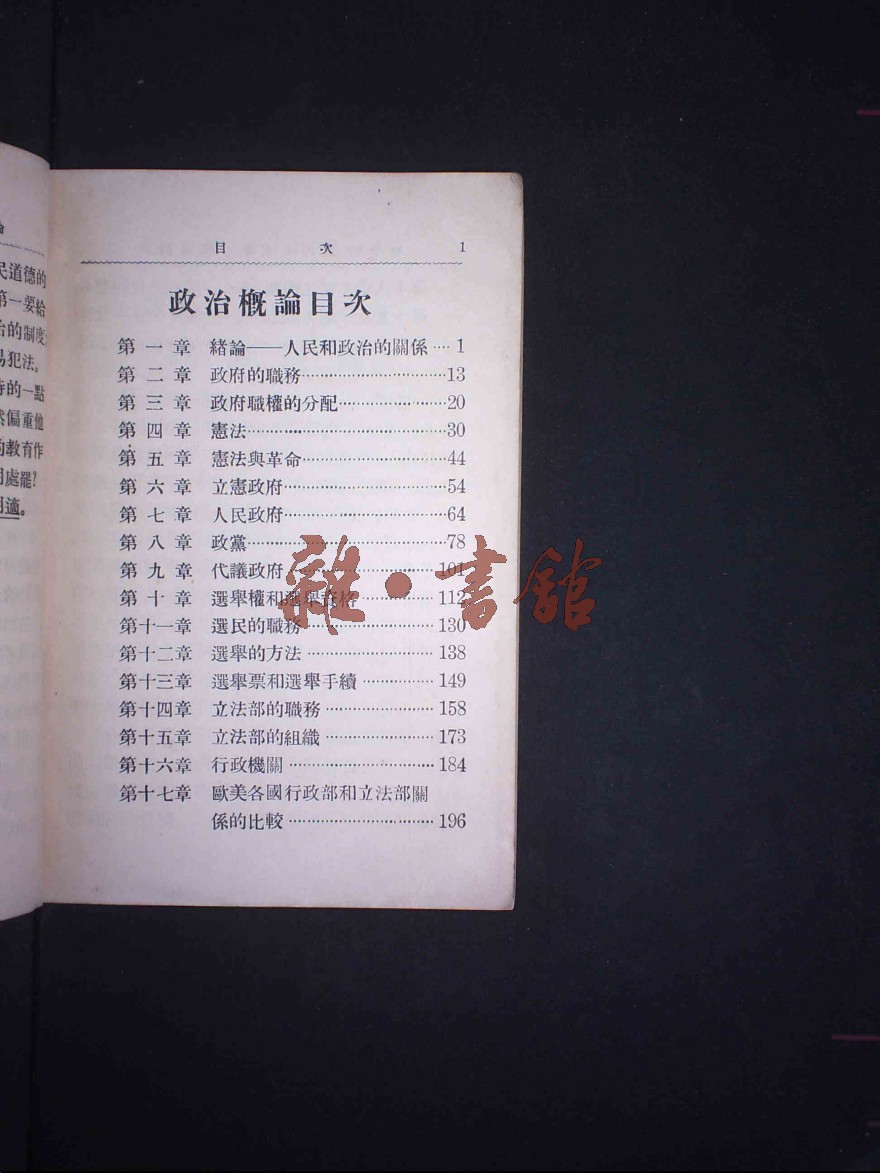 民道德的
第一要給
治的制度
易犯法。
待的一點
然偏重他
的教育作
用處罷？
胡適。
目 次 1
政治概論目次
第一章 緒論——人民和政治的關係…1
第二章 政府的職務…13
第三章 政府職權的分配…20
第四章 憲法…30
第五章 憲法與革命…44
第六章 立憲政府…54
第七章 人民政府…64
第八章 政黨…78
第九章 代議政府…101
第十章 選舉權和選舉資格…112
第十一章 選民的職務…130
第十二章 選舉的方法…138
第十三章 選舉票和選舉手續…149
第十四章 立法部的職務…158
第十五章 立法部的組織…173
第十六章 行政機關…184
第十七章 歐美各國行政部和立法部關
係的比較…196
雜·書館